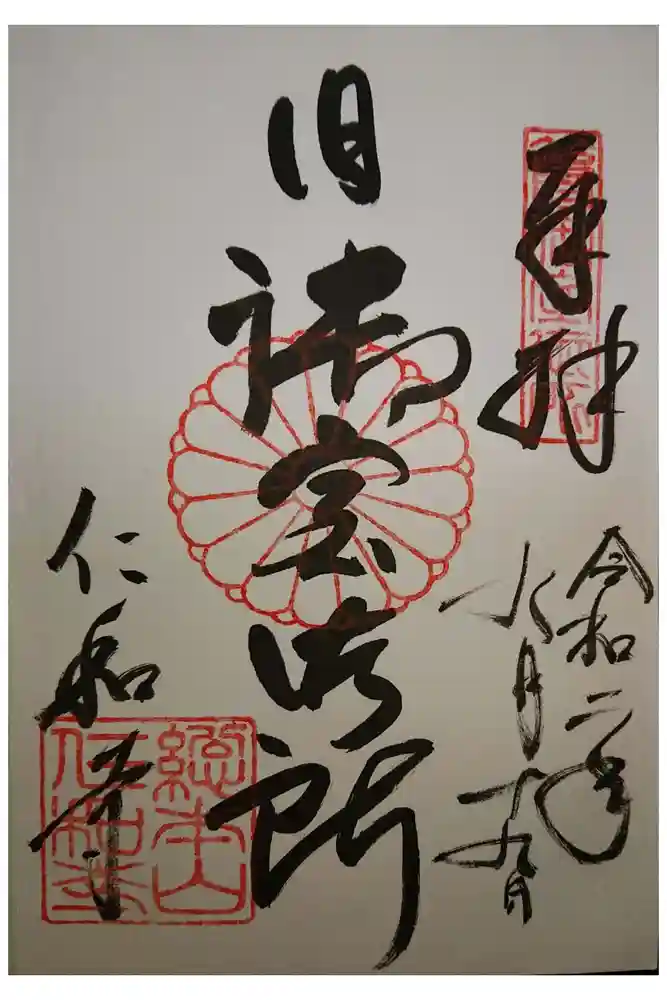 奉拝
令和二年
水月十九日
旧御室御所
仁和寺
總本山
仁和寺